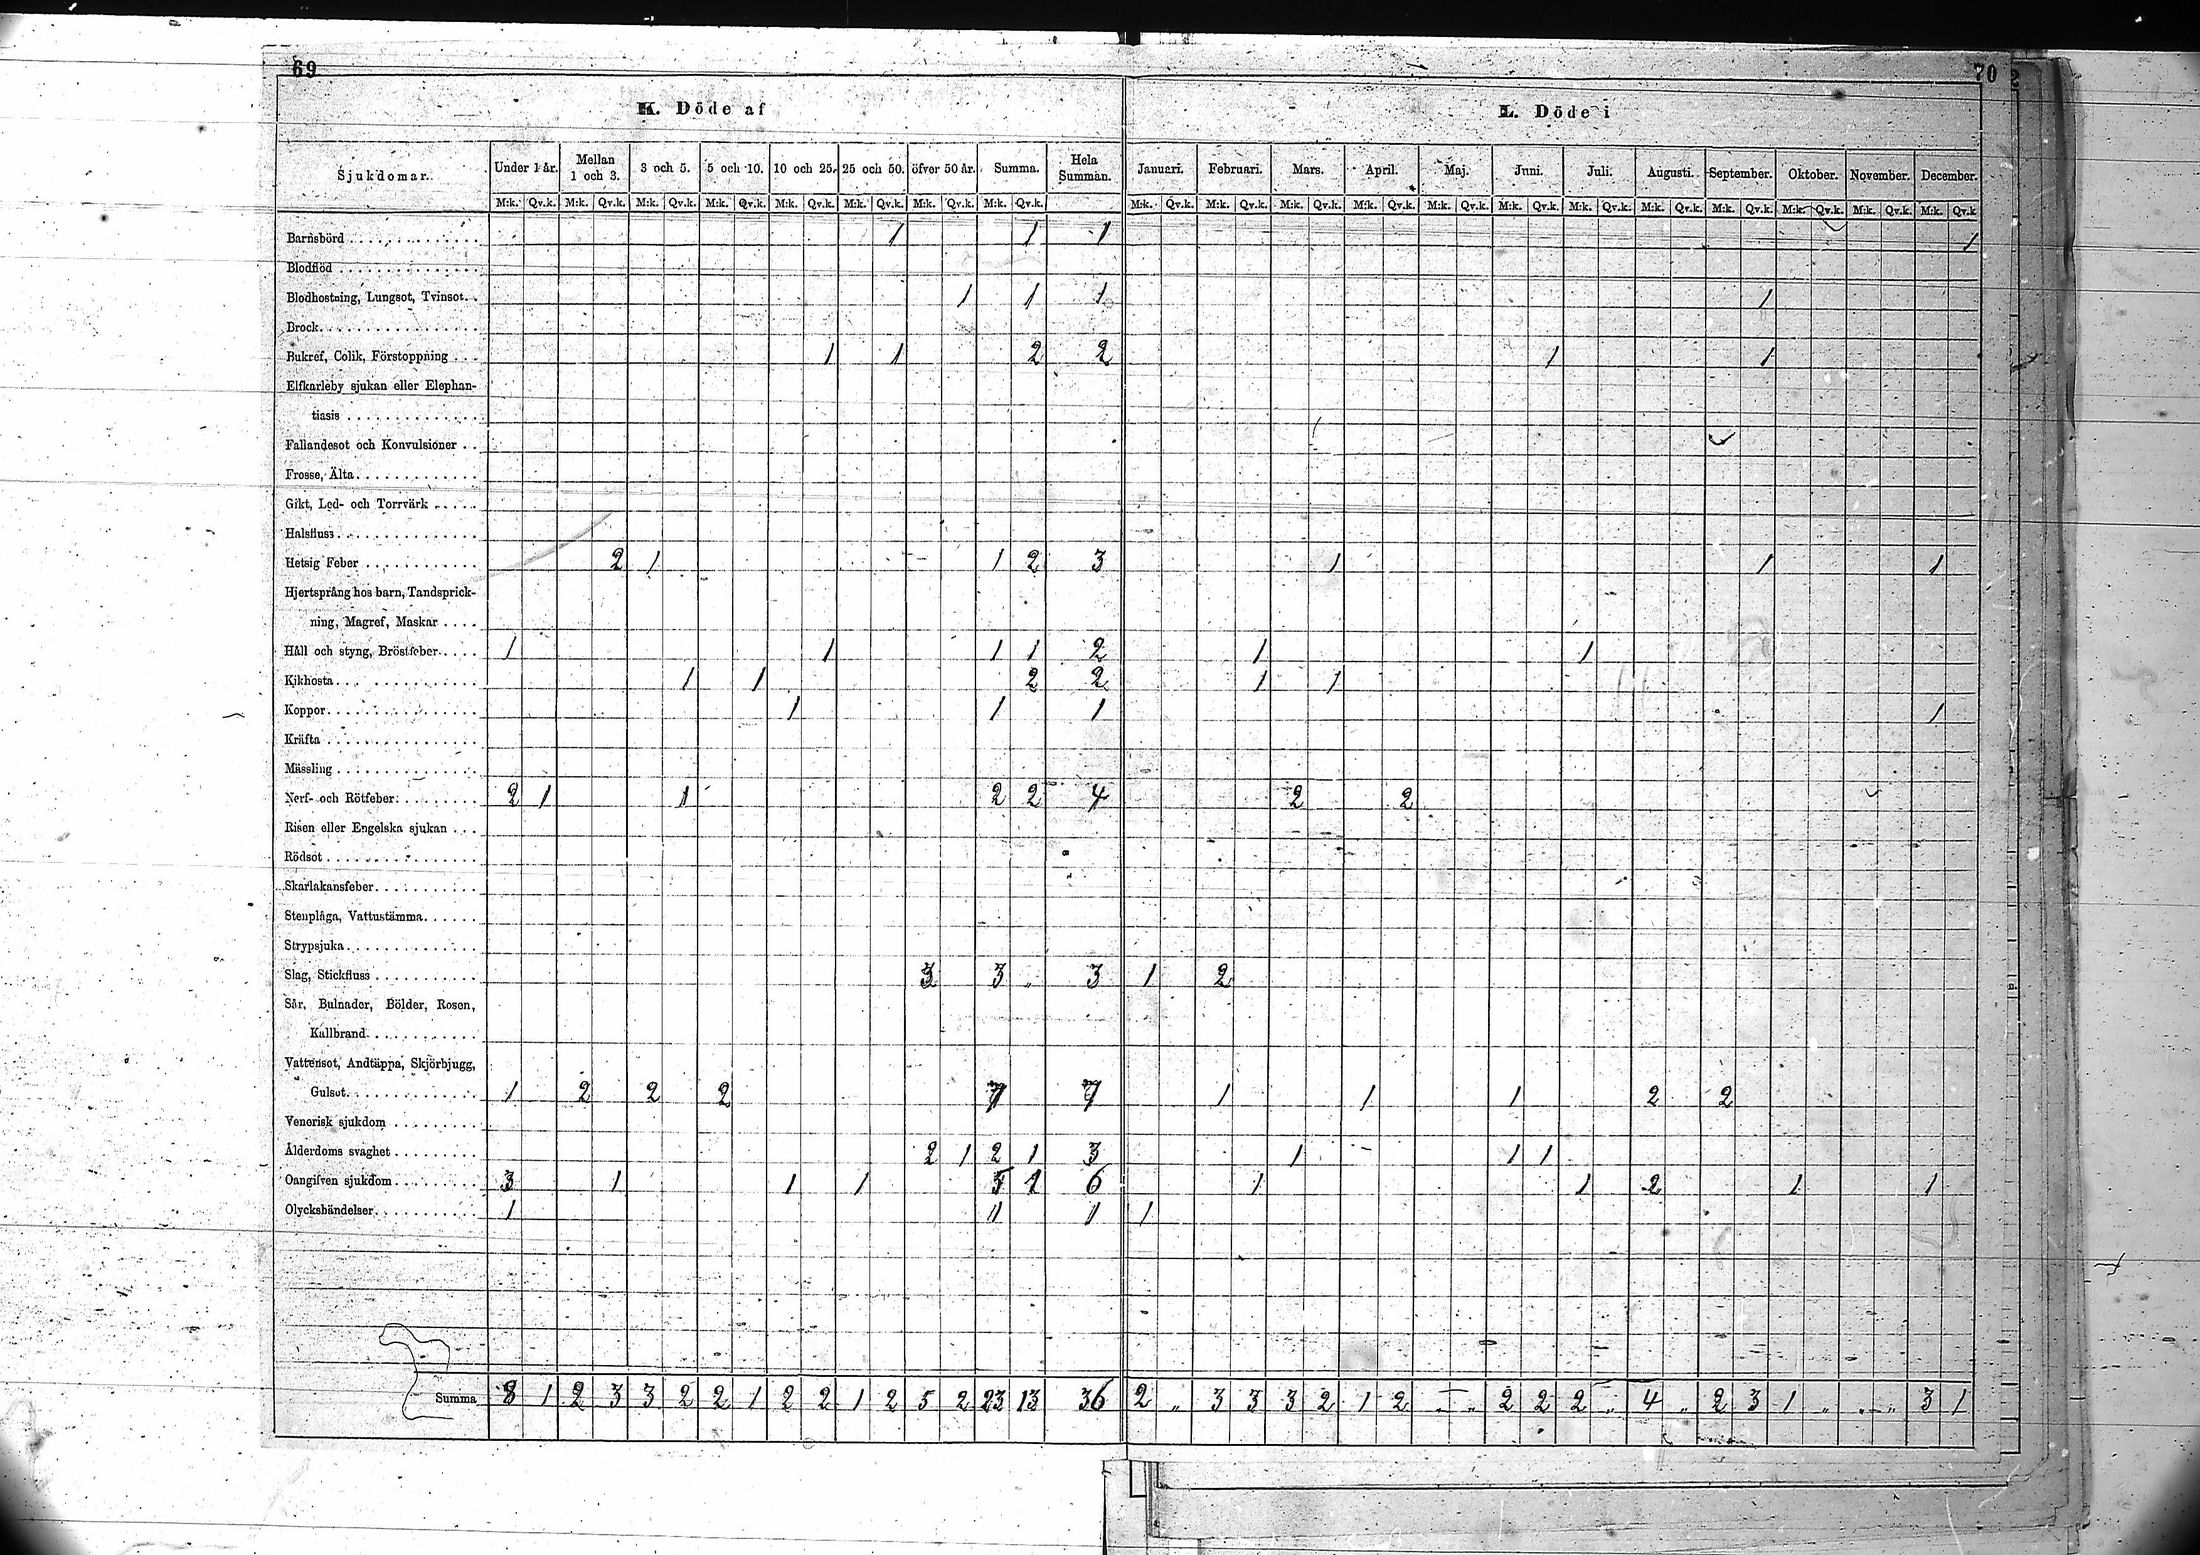 69 70
K. Döde af L. Döde i
Sjukdomar. Under 1 år. Mellan 1 och 3. 3 och 5. 5 och 10. 10 och 25. 25 och 50. öfver 50 år. Summa. Hela Summan. Januari. Februari. Mars. April. Maj. Juni. Juli. Augusti. September. Oktober. November. December.
M:k. Qv.k. M:k. Qv.k. M:k. Qv.k. M:k. Qv.k. M:k. Qv.k. M:k. Qv.k. M:k. Qv.k. M:k. Qv.k. M:k. Qv.k. M:k. Qv.k. M:k. Qv.k. M:k. Qv.k. M:k. Qv.k. M:k. Qv.k. M:k. Qv.k. M:k. Qv.k. M:k. Qv.k. M:k. Qv.k. M:k. Qv.k. M:k. Qv.k
Barnsbörd 1 1 1 1
Blodflöd
Blodhostning, Lungsot, Tvinsot. 1 1 1 1
Brock.
Bukref, Colik, Förstoppning 1 1 2 2 1 1
Elfkarleby sjukan eller Elephan-
tiasis
Fallandesot och Konvulsioner
Frosse, Älta
Gikt, Led- och Torrvärk
Halsfluss
Hetsig Feber 2 1 1 2 3 1 1 1
Hjertsprång hos barn, Tandsprick-
ning, Magref, Maskar
Håll och styng, Bröstfeber 1 1 1 1 2 1 1
Kikhosta 1 1 2 2 1 1
Koppor 1 1 1 1
Kräfta
Mässling
Nerf- och Rötfeber 2 1 1 2 2 4 2 2
Risen eller Engelska sjukan
Rödsot
Skarlakansfeber
Stenplåga, Vattustämma
Strypsjuka
Slag, Stickfluss 3 3 „ 3 1 2
Sår, Bulnader, Bölder, Rosen,
Kallbrand
Vattensot, Andtäppa, Skjörbjugg,
Gulsot 1 2 2 2 7 7 1 1 1 2 2
Venerisk sjukdom
Ålderdoms svaghet 2 1 2 1 3 1 1 1
Oangifven sjukdom 3 1 1 1 5 1 6 1 1 2 1 1
Olyckshändelser 1 1 1 1
Summa 8 1 2 3 3 2 2 1 2 2 1 2 5 2 23 13 36 2 „ 3 3 3 2 1 2 „ „ 2 2 2 „ 4 „ 2 3 1 „ „ „ 3 1